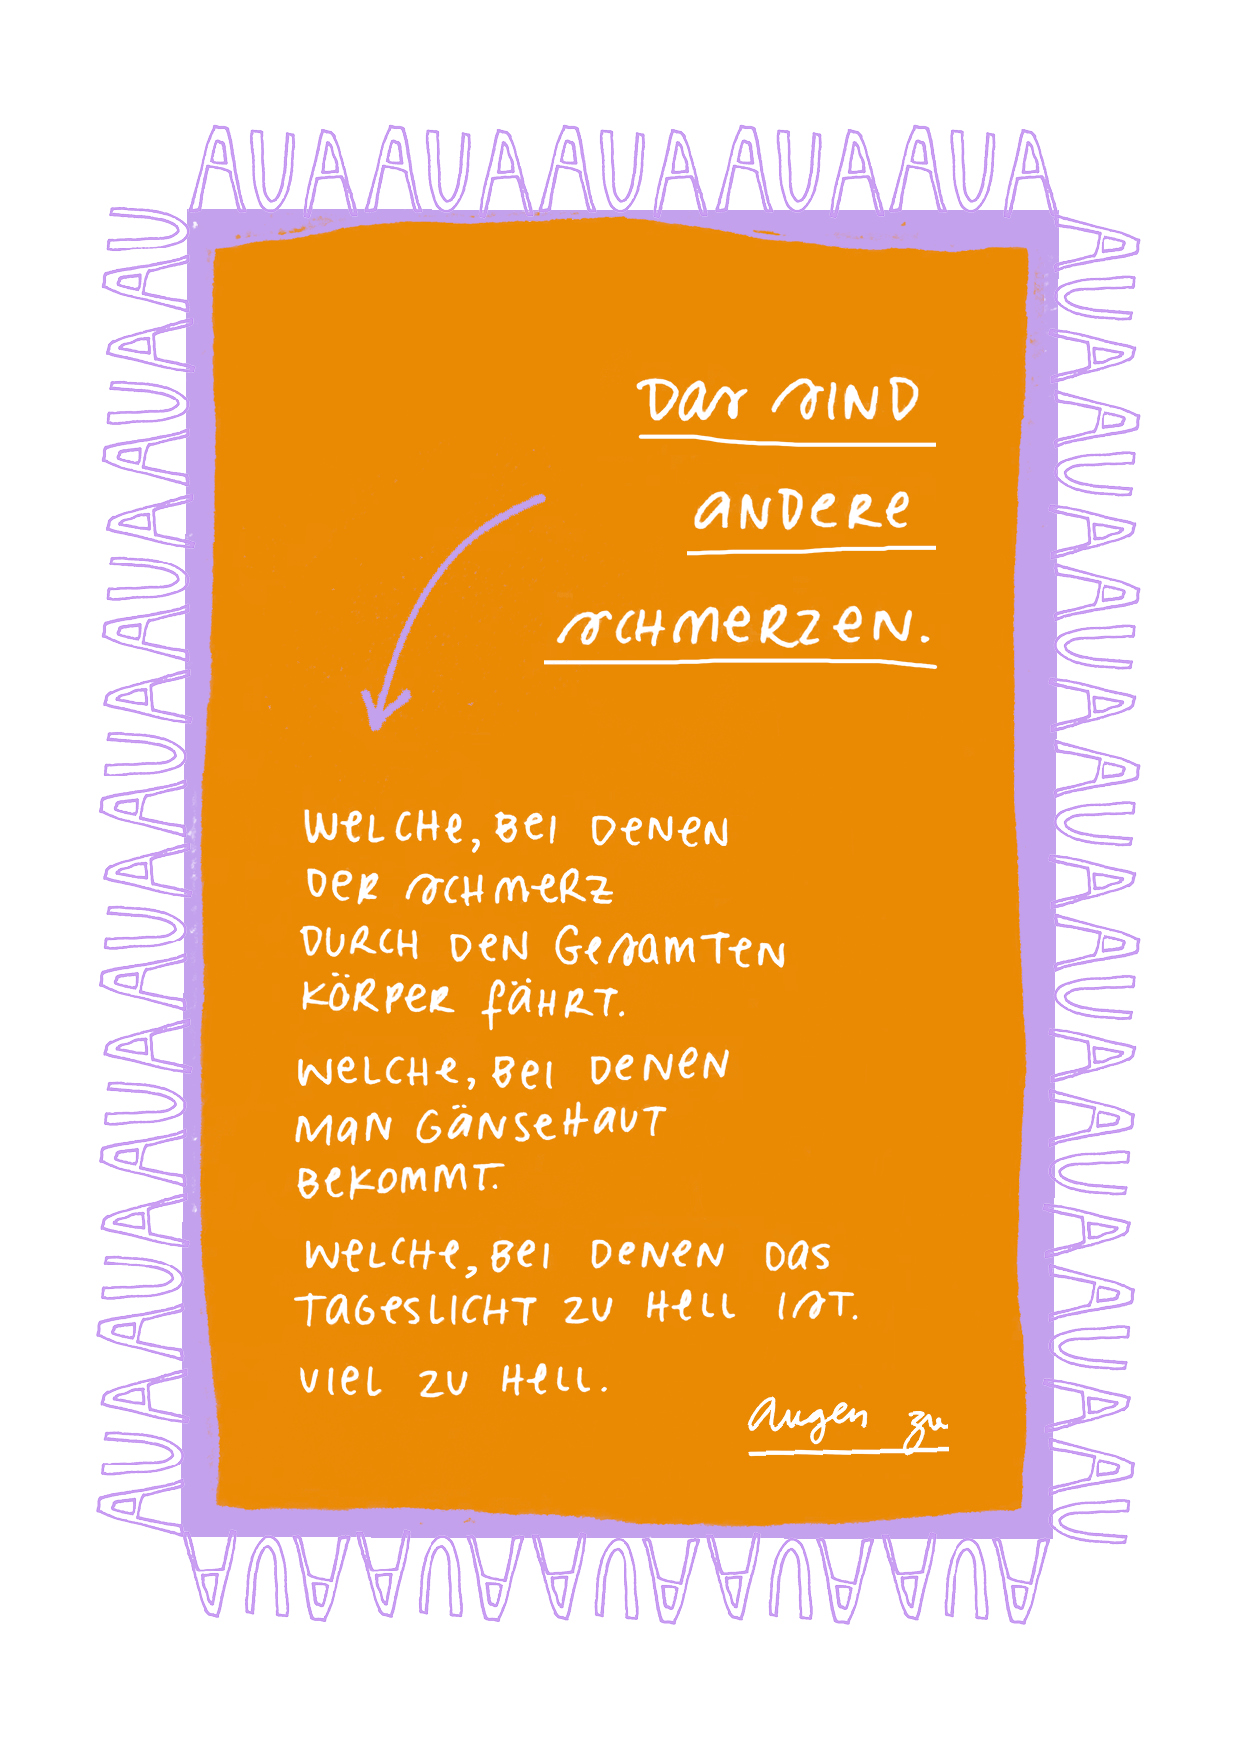 AUAAUAAUAAUAAUA
Das sind
andere
Schmerzen.
Welche, bei denen
der Schmerz
durch den gesamten
Körper fährt.
Welche, bei denen
man Gänsehaut
bekommt.
Welche, bei denen das
Tageslicht zu hell ist.
Viel zu hell.
Augen zu
AUAAUAAUAAUAAUA